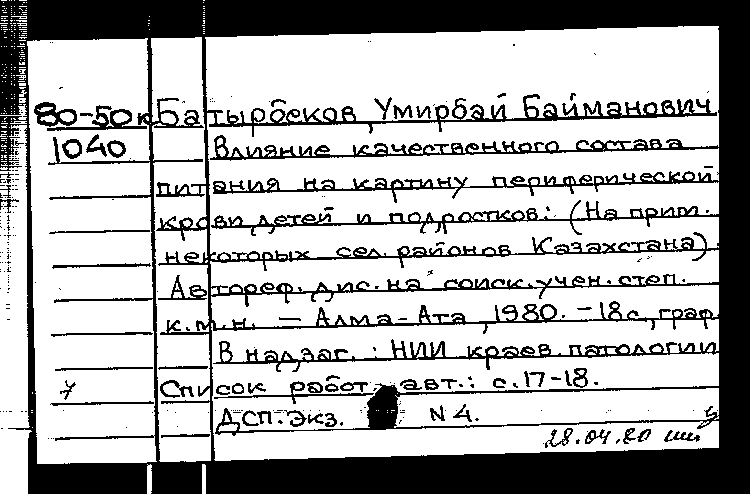 80-50к Батырбеков, Умирбай Байманович
1040 Влияние качественного состава
питания на картину периферической
крови детей и подростков: (На прим.
некоторых сел. районов Казахстана).
Автореф. дис. на соиск. учен. степ.
к.м.н. — Алма-Ата, 1980. - 18 с., граф.
В надзаг.: НИИ краев. патологии
Список работ. авт.: с. 17-18.
ДСП. Экз. N 4.
28.04.80